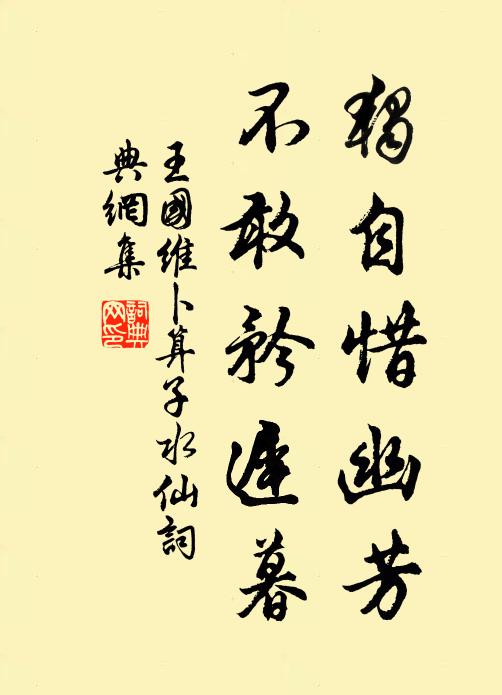 獨自惜幽芳
不敢矜遲暮
王國維卜算子水仙詞
典網集
詞典
网印